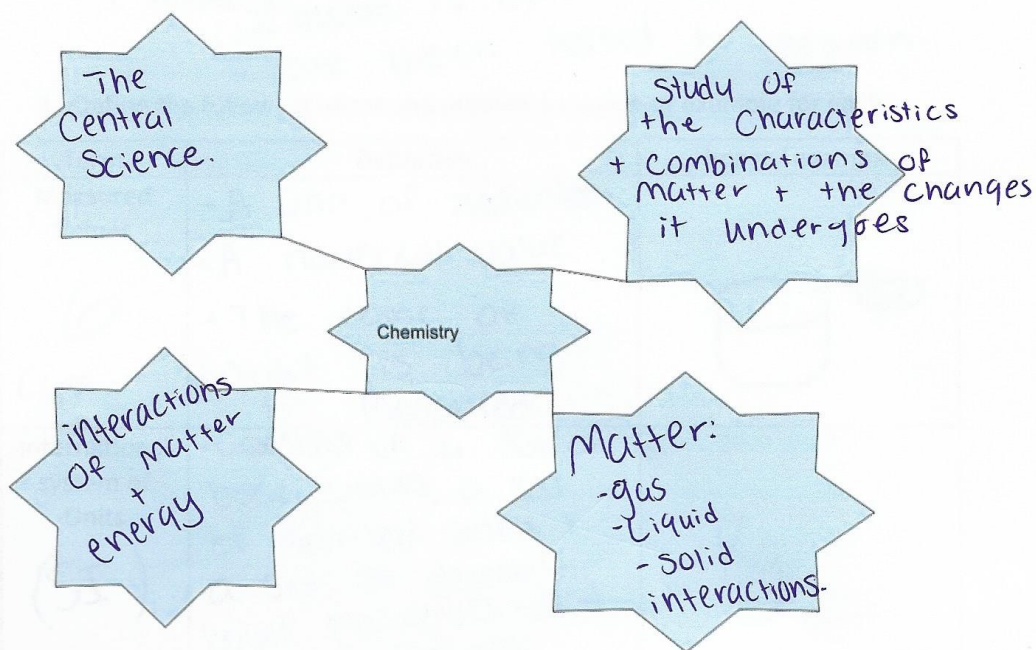 The
Central
Science.
Study Of
the Characteristics
+ Combinations of
Matter + the Changes
it undergoes
Chemistry
interactions
Of Matter
+
energy
Matter:
-gas
-Liquid
- Solid
interactions.